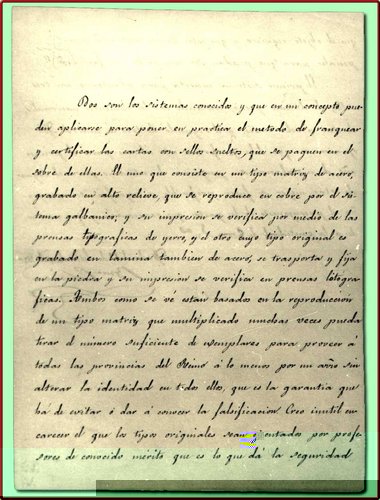 Dos son los sistemas conocidos y que en mi concepto pue-
den aplicarse para poner en practica el metodo de franquear
y certificar las cartas con sellos sueltos, que se peguen en el
sobre de ellas. El uno que consiste en un tipo matriz de acero,
grabado en alto relieve, que se reproduce en cobre por el sis-
tema galbanico, y su impresion se verifica por medio de las
prensas tipograficas de yerro, y el otro cuyo tipo original es
grabado en lamina tambien de acero, se trasporta y fija
en la piedra y su impresion se verifica en prensas litogra-
ficas. Ambos como se vé estan basados en la reproduccion
de un tipo matriz, que multiplicado muchas veces pueda
tirar el número suficiente de exemplares para proveer á
todas las provincias del Reino á lo menos por un año sin
alterar la identidad en todos ellos, que es la garantia que
ha de evitar ó dar á conocer la falsificacion. Creo inutil en-
carecer el que los tipos originales sean ejecutados por profe-
sores de conocido mérito que es lo que dá la seguridad